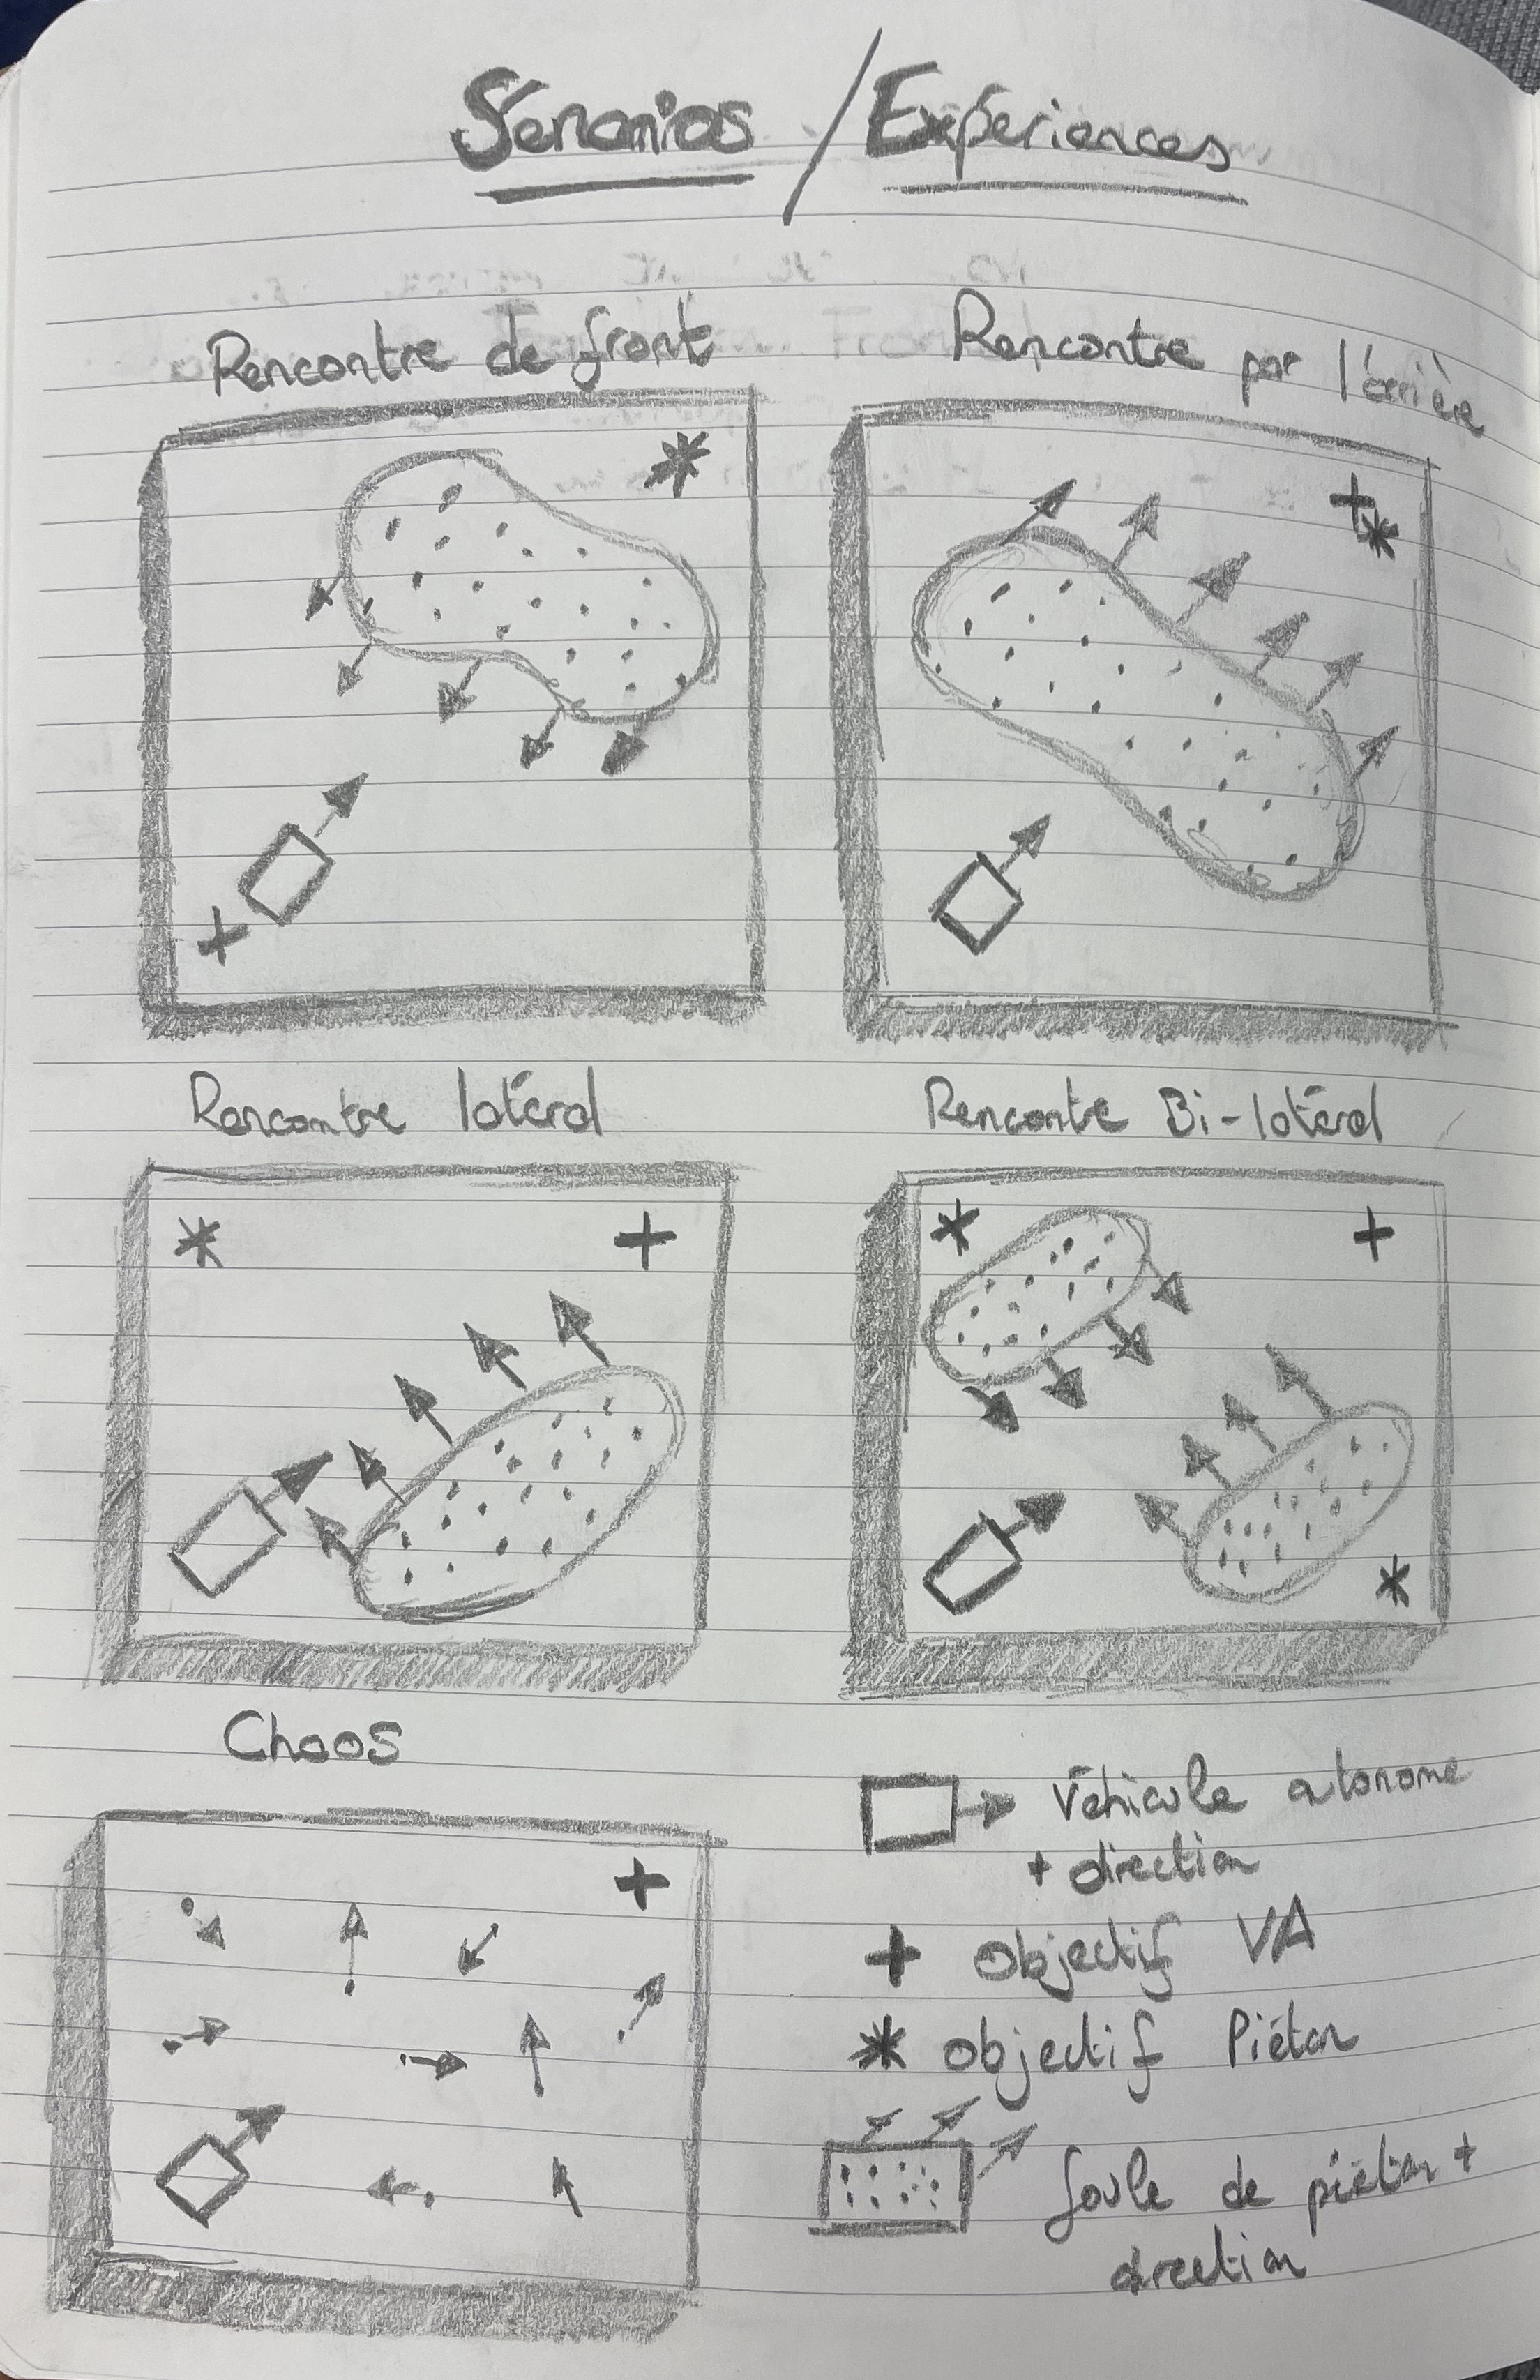 Sénarios / Expériences
Rencontre de front
Rencontre par l'arrière
Rencontre latéral
Rencontre Bi-latéral
Chaos
Véhicule atonome
+ direction
+ Objectif VA
* Objectif Piéton
foule de piéton +
direction